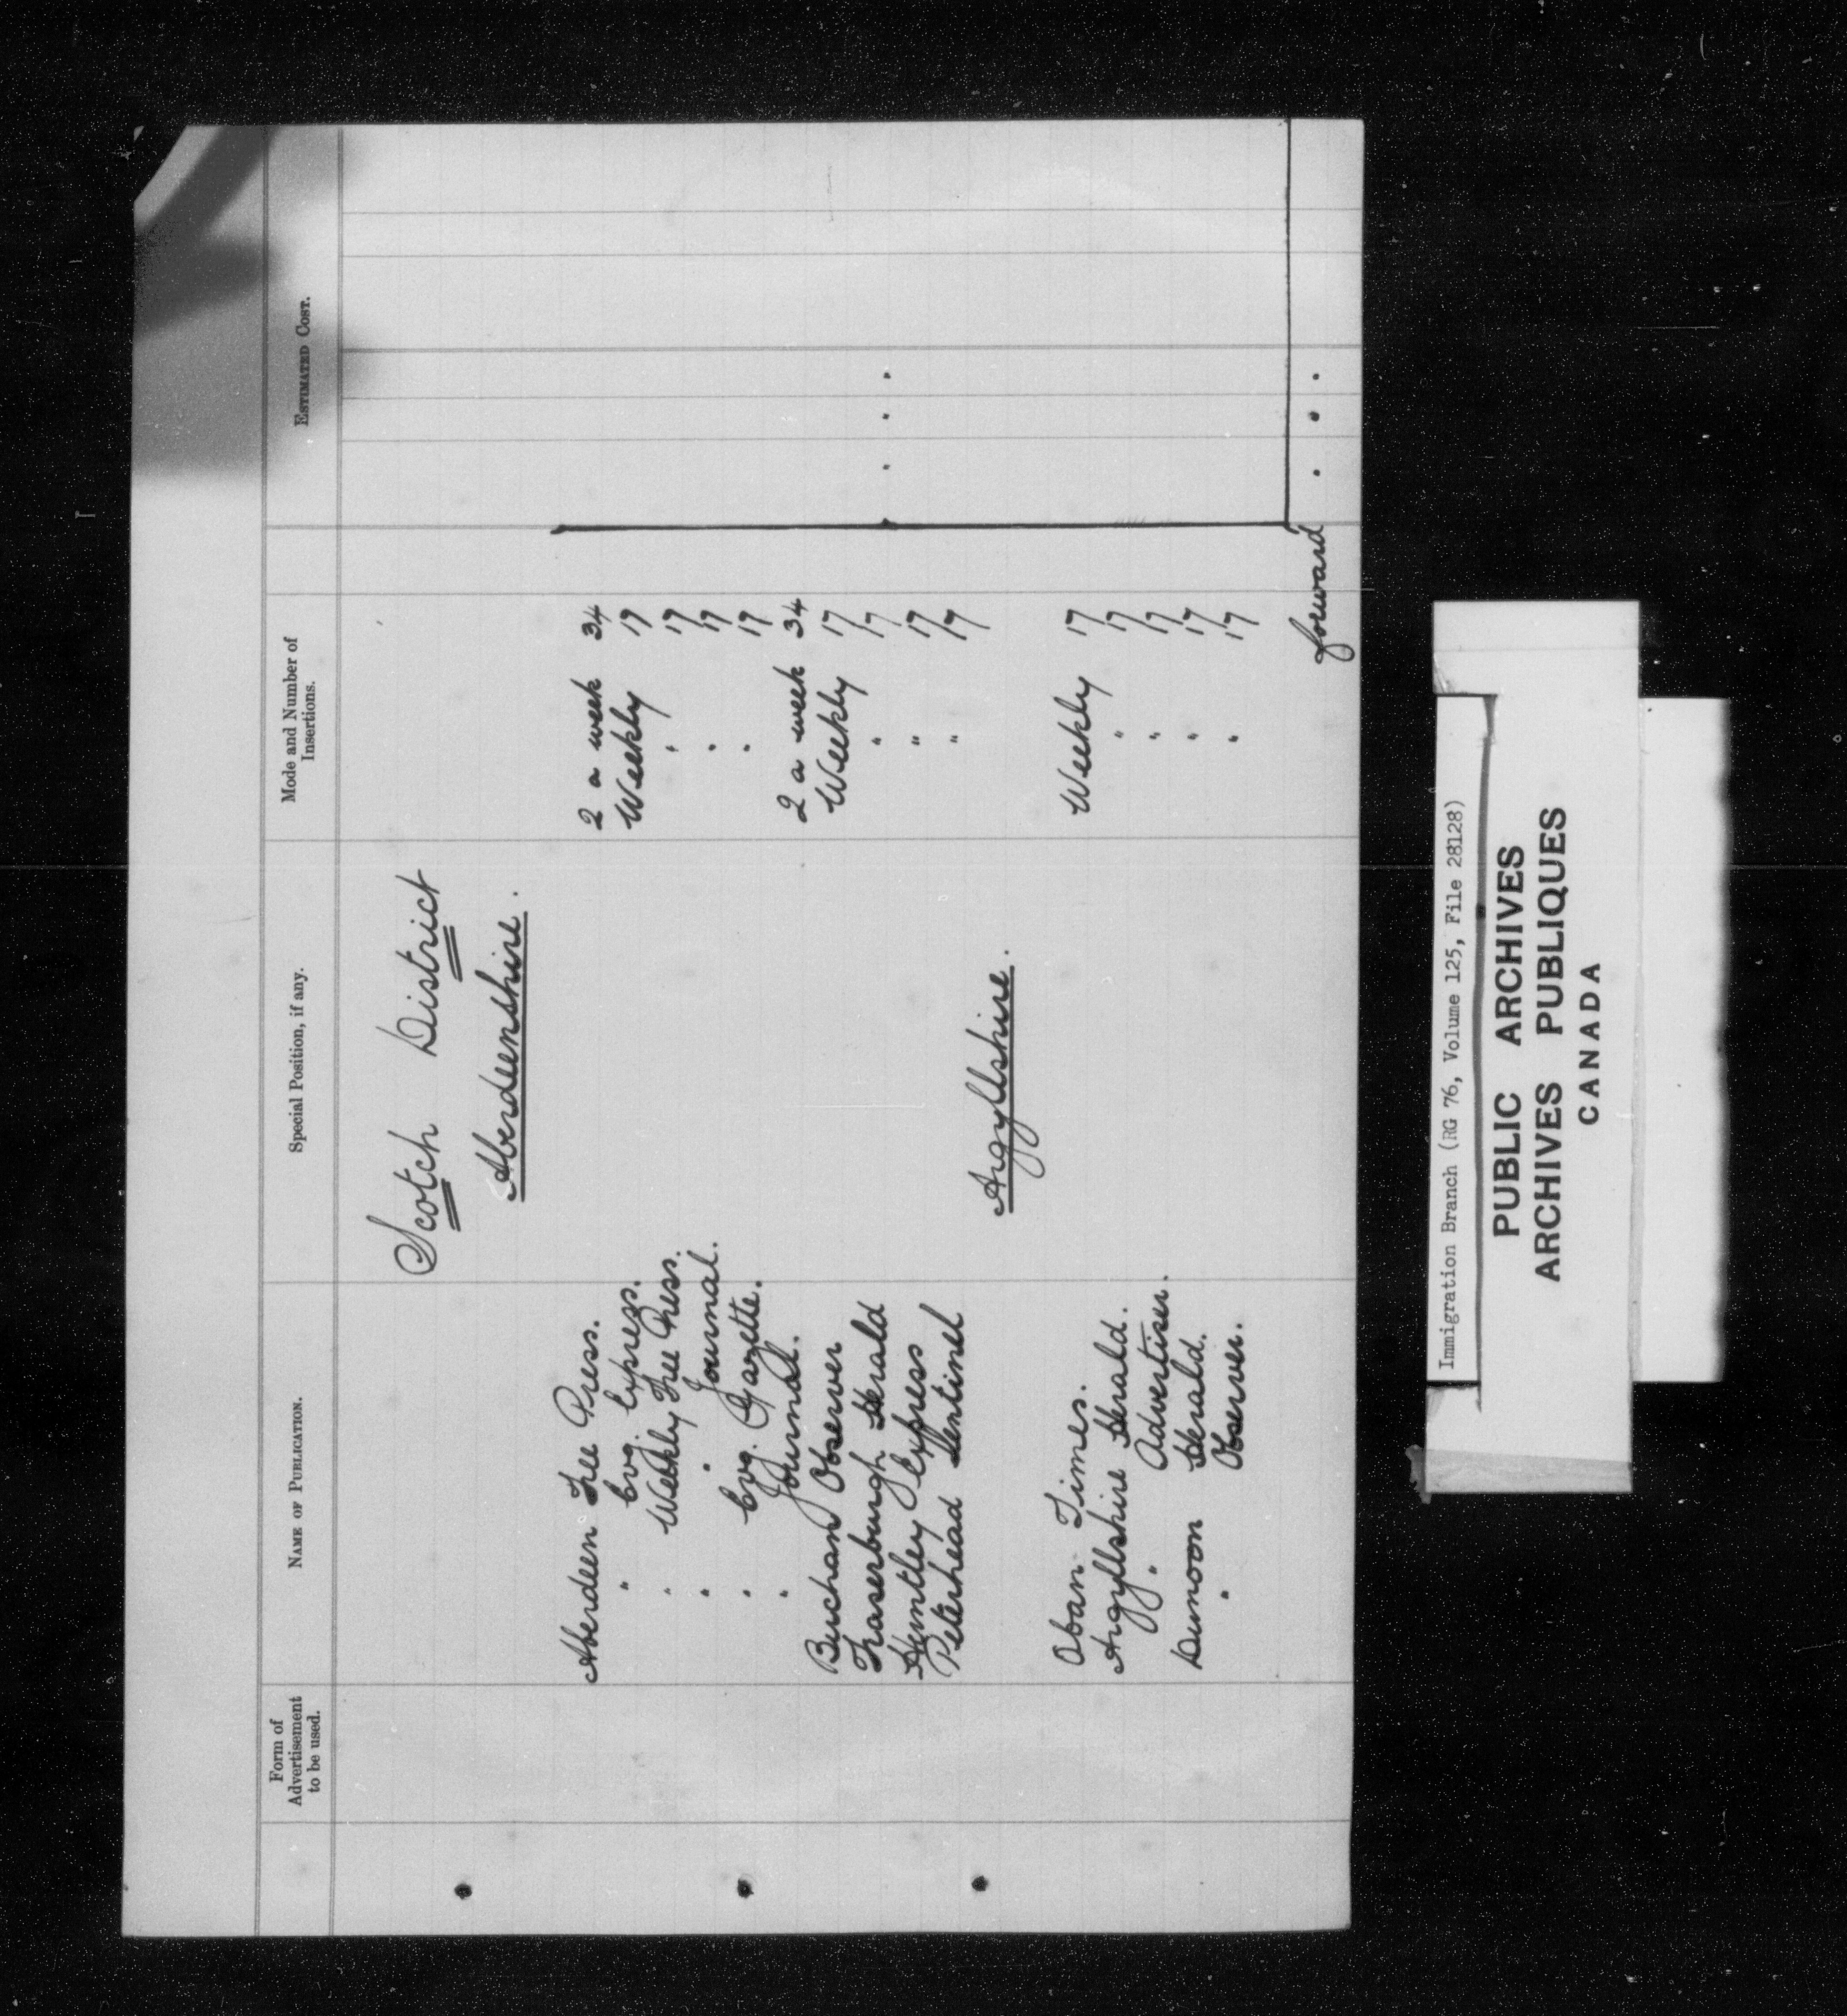 Form of Advertisement to be used. NAME OF PUBLICATION. Special Position, if any. Mode and Number of Insertions. ESTIMATED COST.
Scotch District
Aberdeenshire.
Aberdeen Free Press. 2 a week 34
" Evg. Express. Weekly 17
" Weekly Free Press. " 17
" " Journal. " 17
" Evg. Gazette. " 17
" Journal. 2 a week 34
Buchan Observer Weekly 17
Fraserburgh Herald " 17
Huntley Express " 17
Peterhead Sentinel " 17
Argyllshire.
Oban Times. Weekly 17
Argyllshire Herald. " 17
" Advertiser. " 17
Dunoon Herald. " 17
" Observer. " 17
forward
Immigration Branch (RG 76, Volume 125, File 28128)
PUBLIC ARCHIVES
ARCHIVES PUBLIQUES
CANADA